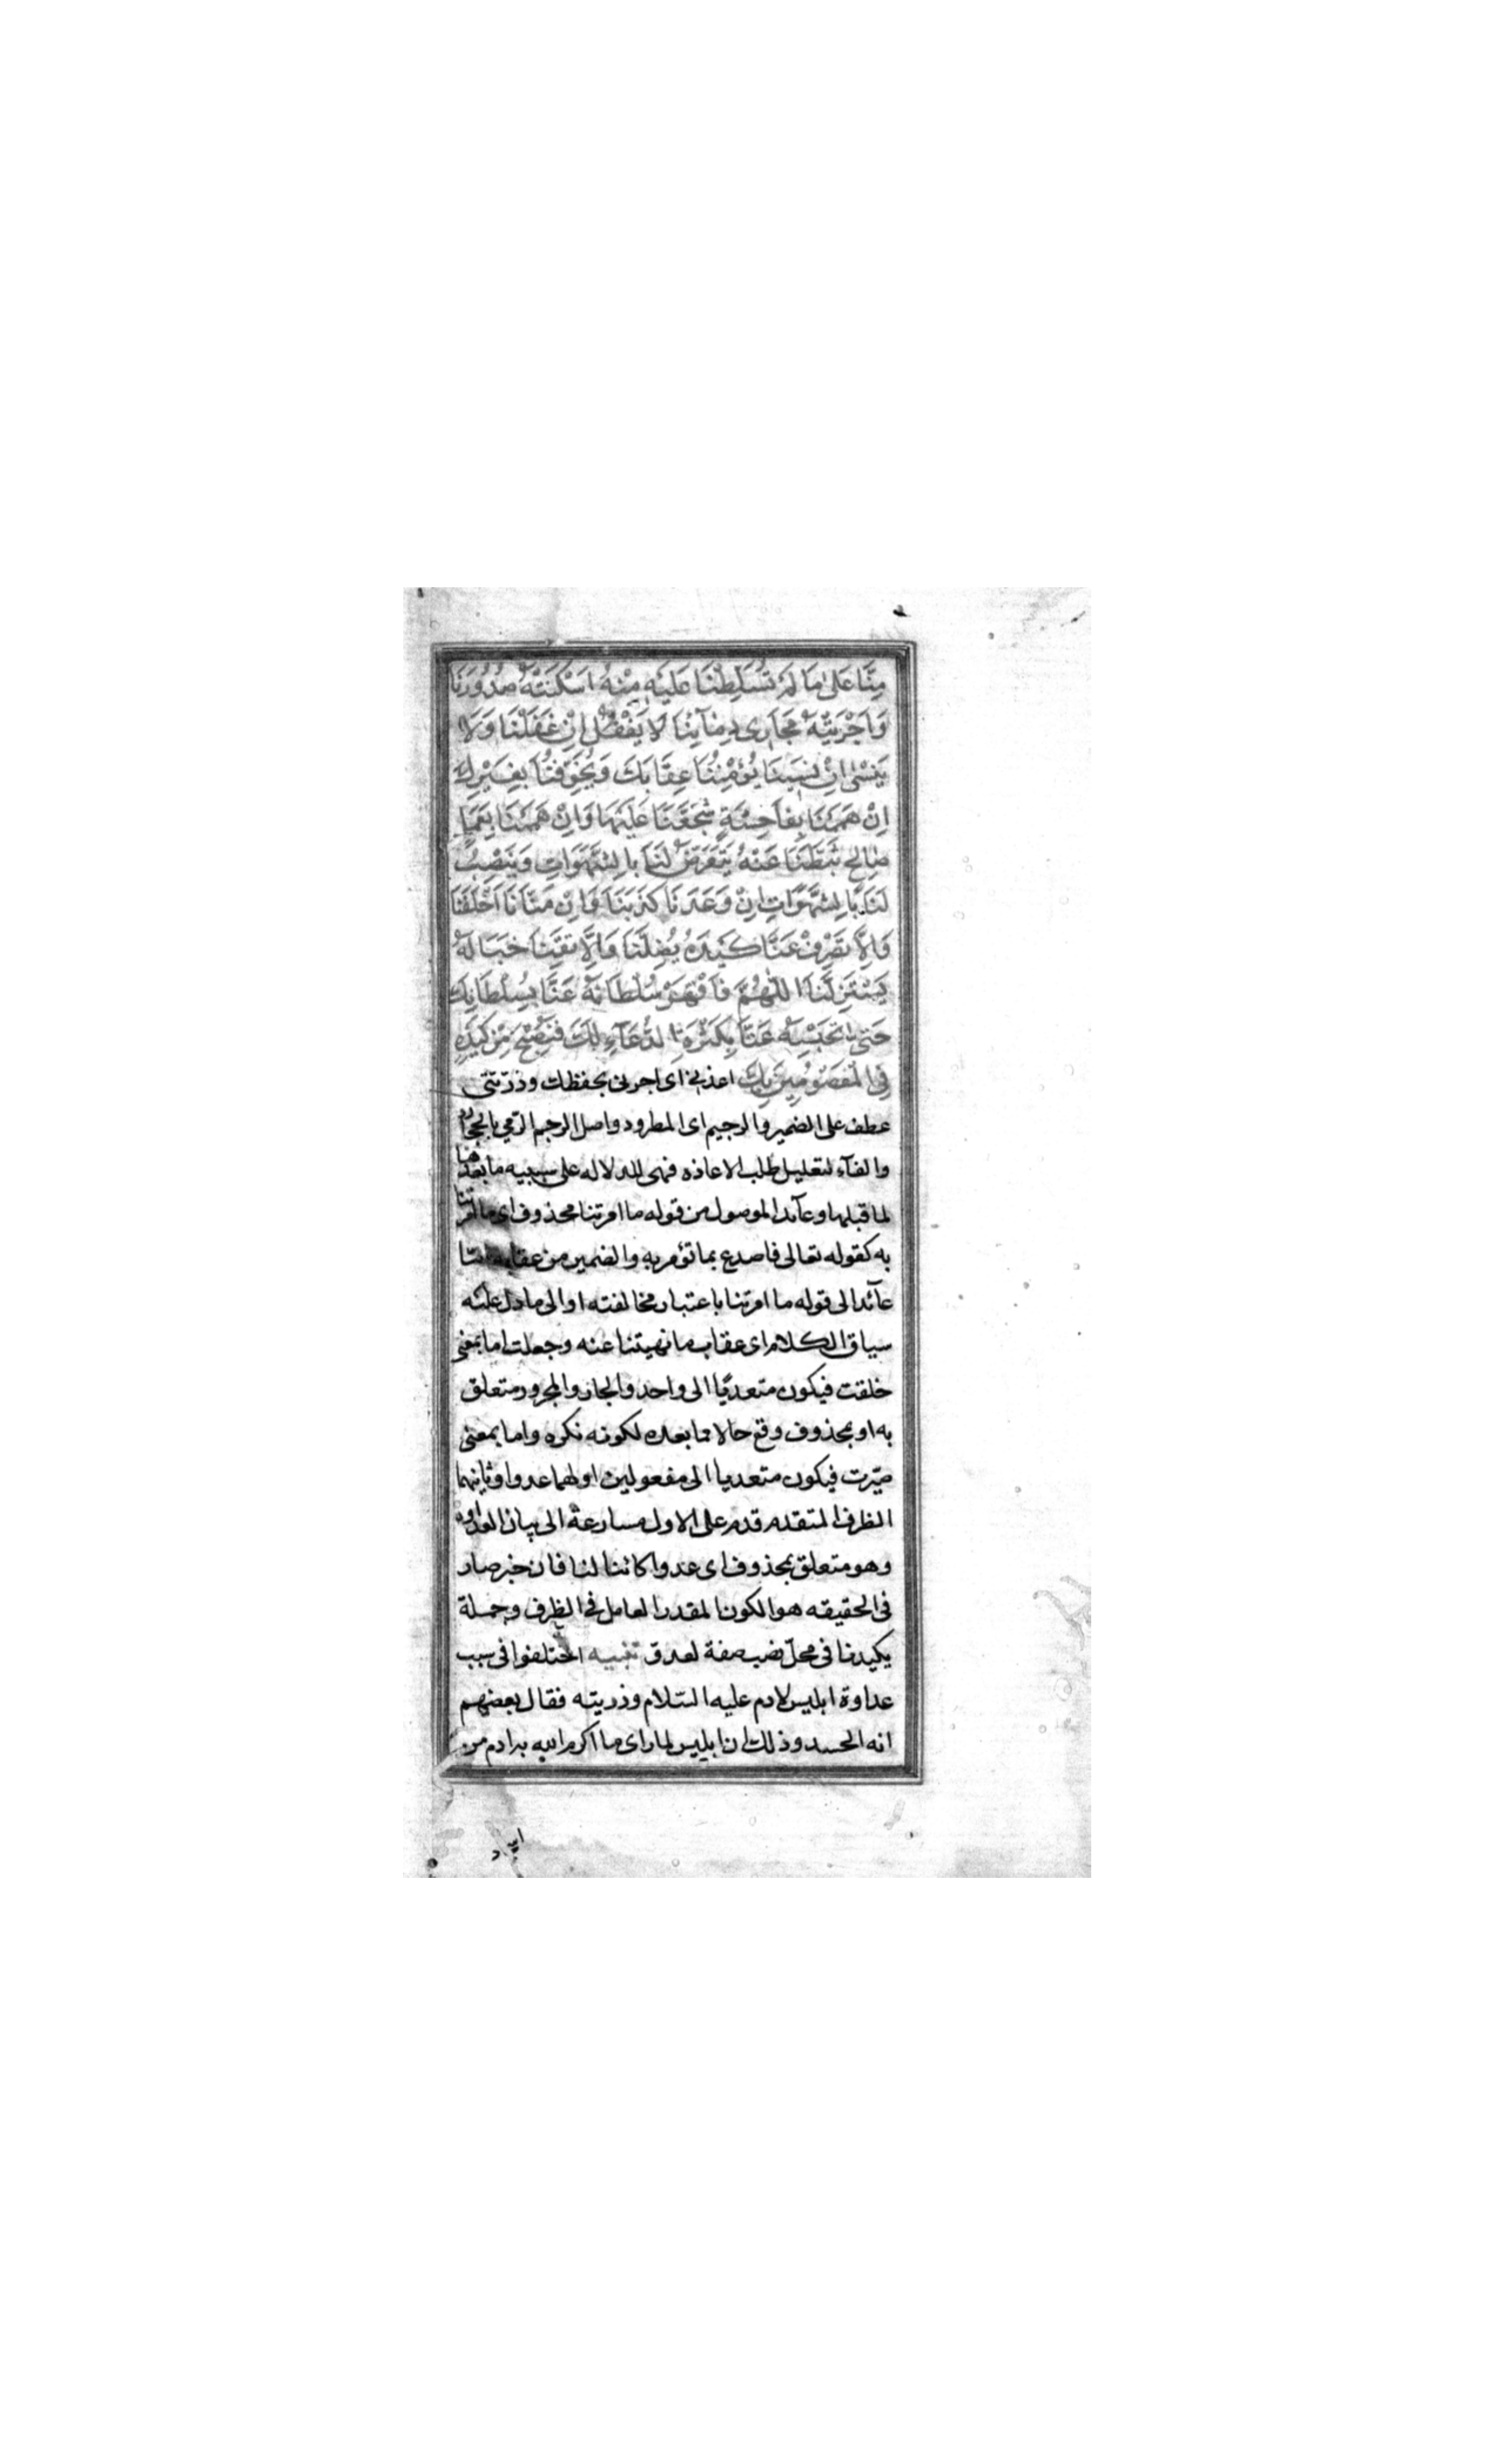 مِنَّا عَلَىٰ مَا لَمْ تُسَلِّطْنَا عَلَيْهِ مِنْهُ اَسْكَنْتَهُ صُدُورَنَا
وَاَجْرَيْتَهُ مَجَارِىَ دِمَآئِنَا لَا يَغْفُلُ اِنْ غَفَلْنَا وَلَا
يَنْسٰى اِنْ نَسِينَا يُؤْمِنُنَا عِقَابَكَ وَيُخَوِّفُنَا بِغَيْرِكَ
اِنْ هَمَمْنَا بِفَاحِشَةٍ شَجَّعَنَا عَلَيْهَا وَاِنْ هَمَمْنَا بِعَمَلٍ
صَالِحٍ ثَبَّطَنَا عَنْهُ يَتَعَرَّضُ لَنَا بِالشَّهَوَاتِ وَيَنْصِبُ
لَنَا بِالشَّهَوَاتِ اِنْ وَعَدَنَا كَذَبَنَا وَاِنْ مَنَّانَا اَخْلَفَنَا
وَاِلَّا تَصْرِفْ عَنَّا كَيْدَهُ يُضِلَّنَا وَاِلَّا تَقِنَا خَبَالَهُ
يَسْتَزِلَّنَا اللّٰهُمَّ فَاقْهَرْ سُلْطَانَهُ عَنَّا بِسُلْطَانِكَ
حَتّٰى تَحْبِسَهُ عَنَّا بِكَثْرَةِ الدُّعَآءِ لَكَ فَنُصْبِحَ مِنْ كَيْدِهِ
فِى الْمَعْصُومِينَ بِكَ اعذنى اى اجرنى بحفظك وذرّيتى
عطف على الضمير والرجيم اى المطرود واصل الرجم الرّمي بالحجاره
والفآء لتعليل طلب الاعاذه فهى للدلاله على سببيه ما بعدها
لما قبلها وعآئد الموصول من قوله ما امرتنا محذوف اى ما امرتنا
به كقوله تعالى فاصدع بما تؤمر به والضمير من عقابه امّا
عآئد الى قوله ما امرتنا باعتبار مخالفته او الى ما دل عليه
سياق الكلام اى عقاب ما نهيتنا عنه وجعلت اما بمعنى
خلقت فيكون متعديًا الى واحد والجار والمجرور متعلق
به او بمحذوف وقع حالا مما بعده لكونه نكره واما بمعنى
صيّرت فيكون متعديا الى مفعولين اولهما عدوا وثانيهما
الظرف المتقدم قدم على الاول مسارعة الى بيان العداوه
وهو متعلق بمحذوف اى عدوا كائنا لنا فان خبر صار
فى الحقيقه هو الكون المقدر العامل فى الظرف وجملة
يكيدنا فى محلّ نصب صفة لعدوّ تنبيه اختلفوا فى سبب
عداوة ابليس لادم عليه السّلام وذريته فقال بعضهم
انه الحسد وذلك ان ابليس لما راى ما اكرم الله به ادم من